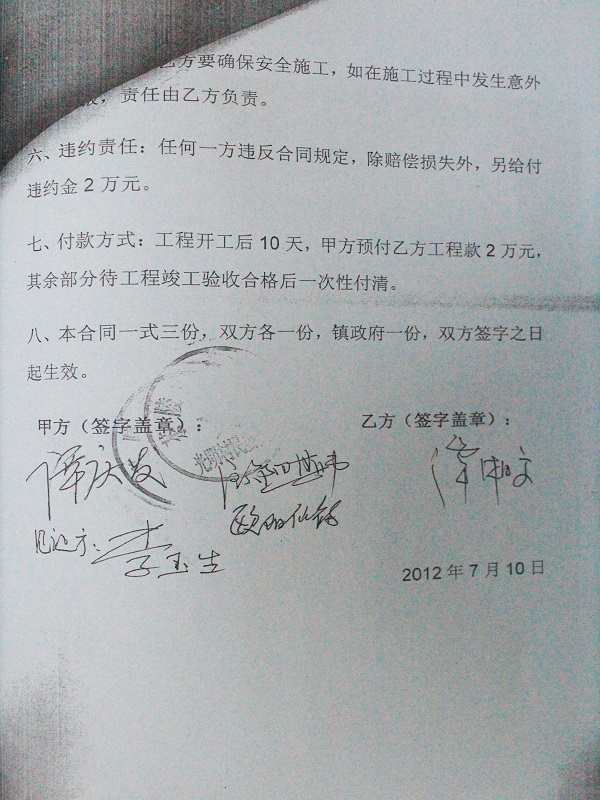 乙方要确保安全施工，如在施工过程中发生意外
，责任由乙方负责。
六、违约责任：任何一方违反合同规定，除赔偿损失外，另给付
违约金2万元。
七、付款方式：工程开工后10天，甲方预付乙方工程款2万元，
其余部分待工程竣工验收合格后一次性付清。
八、本合同一式三份，双方各一份，镇政府一份，双方签字之日
起生效。
甲方（签字盖章）：
乙方（签字盖章）：
谭庆发
见证方：李玉生
2012年7月10日